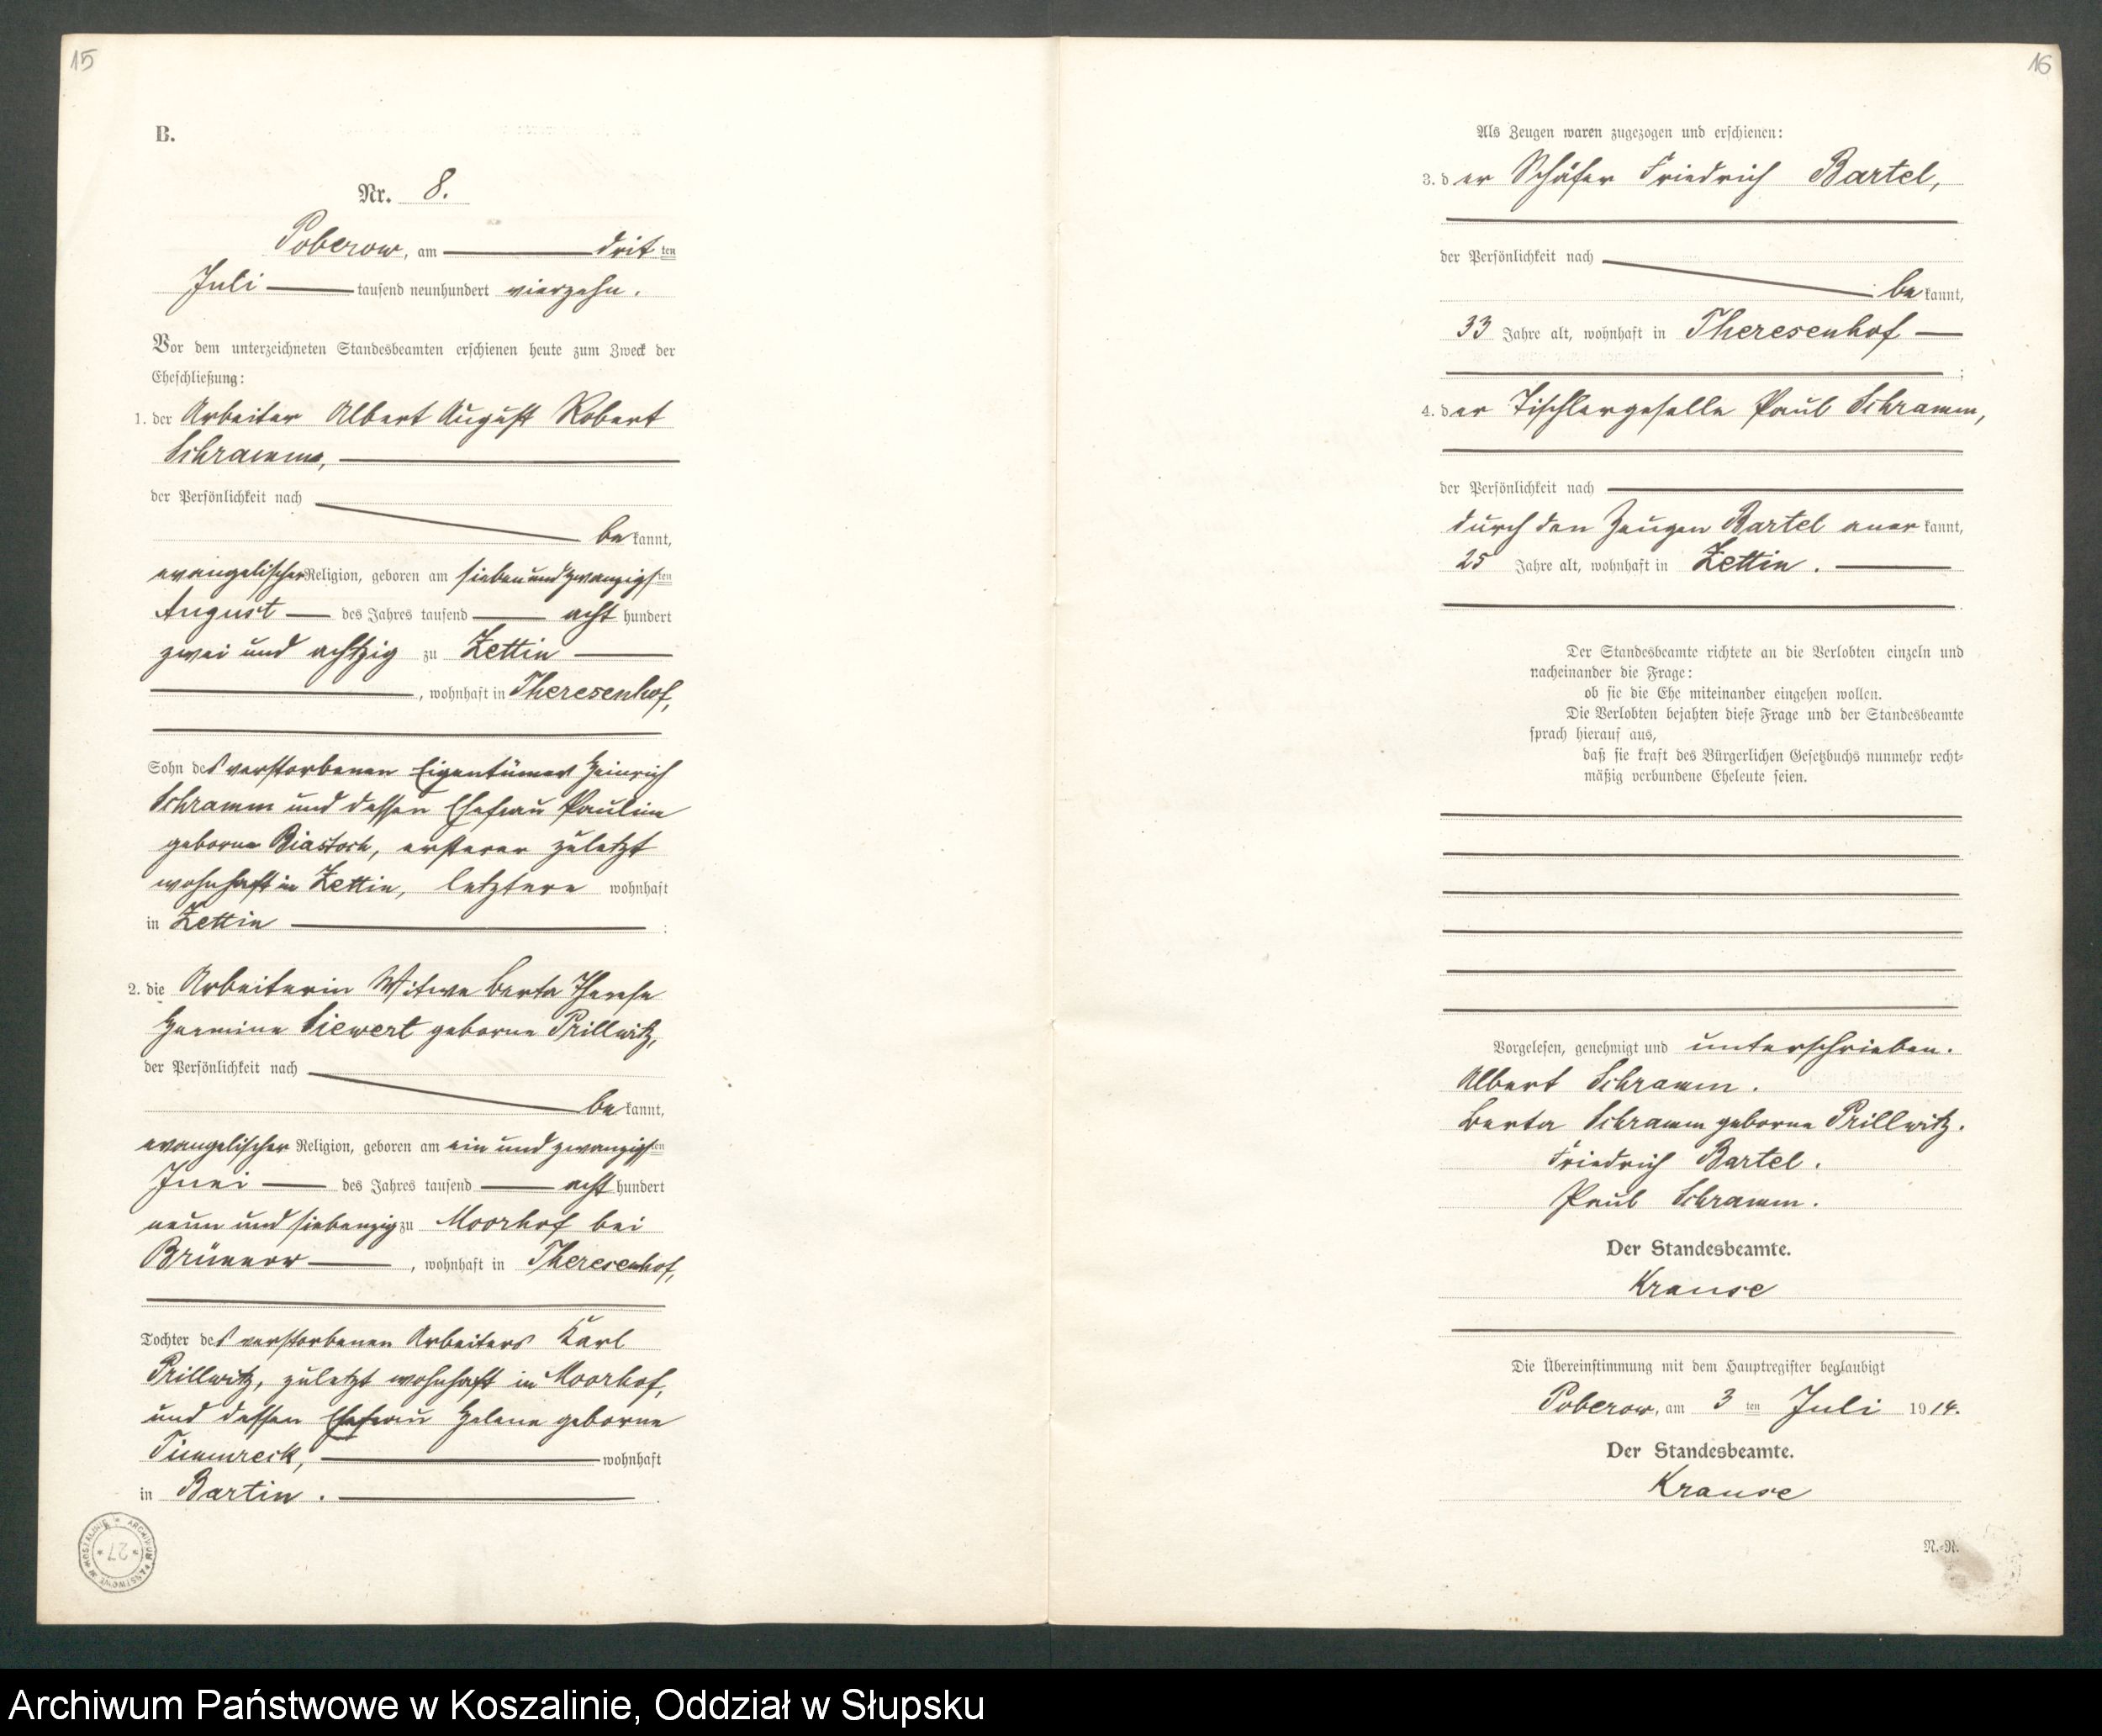 15
B.
Nr. 8.
Poberow, am drit ten
Juli tausend neunhundert vierzehn.
Vor dem unterzeichneten Standesbeamten erschienen heute zum Zweck der
Eheschließung:
1. der Arbeiter Albert August Robert
Schramm,
der Persönlichkeit nach
be kannt,
evangelischer Religion, geboren am siebenundzwanzigsten
August des Jahres tausend acht hundert
zwei und achtzig zu Zettin
, wohnhaft in Theresenhof,
Sohn des verstorbenen Eigentümers Heinrich
Schramm und dessen Ehefrau Pauline
geborne Biastoch, ersterer zuletzt
wohnhaft in Zettin, letztere wohnhaft
in Zettin :
2. die Arbeiterin Witwe Berta Therese
Hermine Siewert geborne Prillwitz,
der Persönlichkeit nach
be kannt,
evangelischer Religion, geboren am ein und zwanzigsten
Juni des Jahres tausend acht hundert
neun und siebenzig zu Moorhof bei
Brünnow, wohnhaft in Theresenhof,
Tochter des verstorbenen Arbeiters Karl
Prillwitz, zuletzt wohnhaft in Moorhof,
und dessen Ehefrau Helene geborne
wohnhaft
in Bartin.
ARCHIWUM PAŃSTWOWE W KOSZALINIE * 27 *
16
Als Zeugen waren zugezogen und erschienen:
3. der Schäfer Friedrich Bartel,
der Persönlichkeit nach
be kannt,
33 Jahre alt, wohnhaft in Theresenhof
;
4. der Tischlergeselle Paul Schramm,
der Persönlichkeit nach
durch den Zeugen Bartel aner kannt,
25 Jahre alt, wohnhaft in Zettin.
Der Standesbeamte richtete an die Verlobten einzeln und
nacheinander die Frage:
ob sie die Ehe miteinander eingehen wollen.
Die Verlobten bejahten diese Frage und der Standesbeamte
sprach hierauf aus,
daß sie kraft des Bürgerlichen Gesetzbuchs nunmehr recht-
mäßig verbundene Eheleute seien.
Vorgelesen, genehmigt und unterschrieben.
Albert Schramm.
Berta Schramm geborne Prillwitz.
Friedrich Bartel.
Paul Schramm.
Der Standesbeamte.
Krause
Die Übereinstimmung mit dem Hauptregister beglaubigt
Poberow, am 3 ten Juli 1914.
Der Standesbeamte.
Krause
N.-R.
Archiwum Państwowe w Koszalinie, Oddział w Słupsku